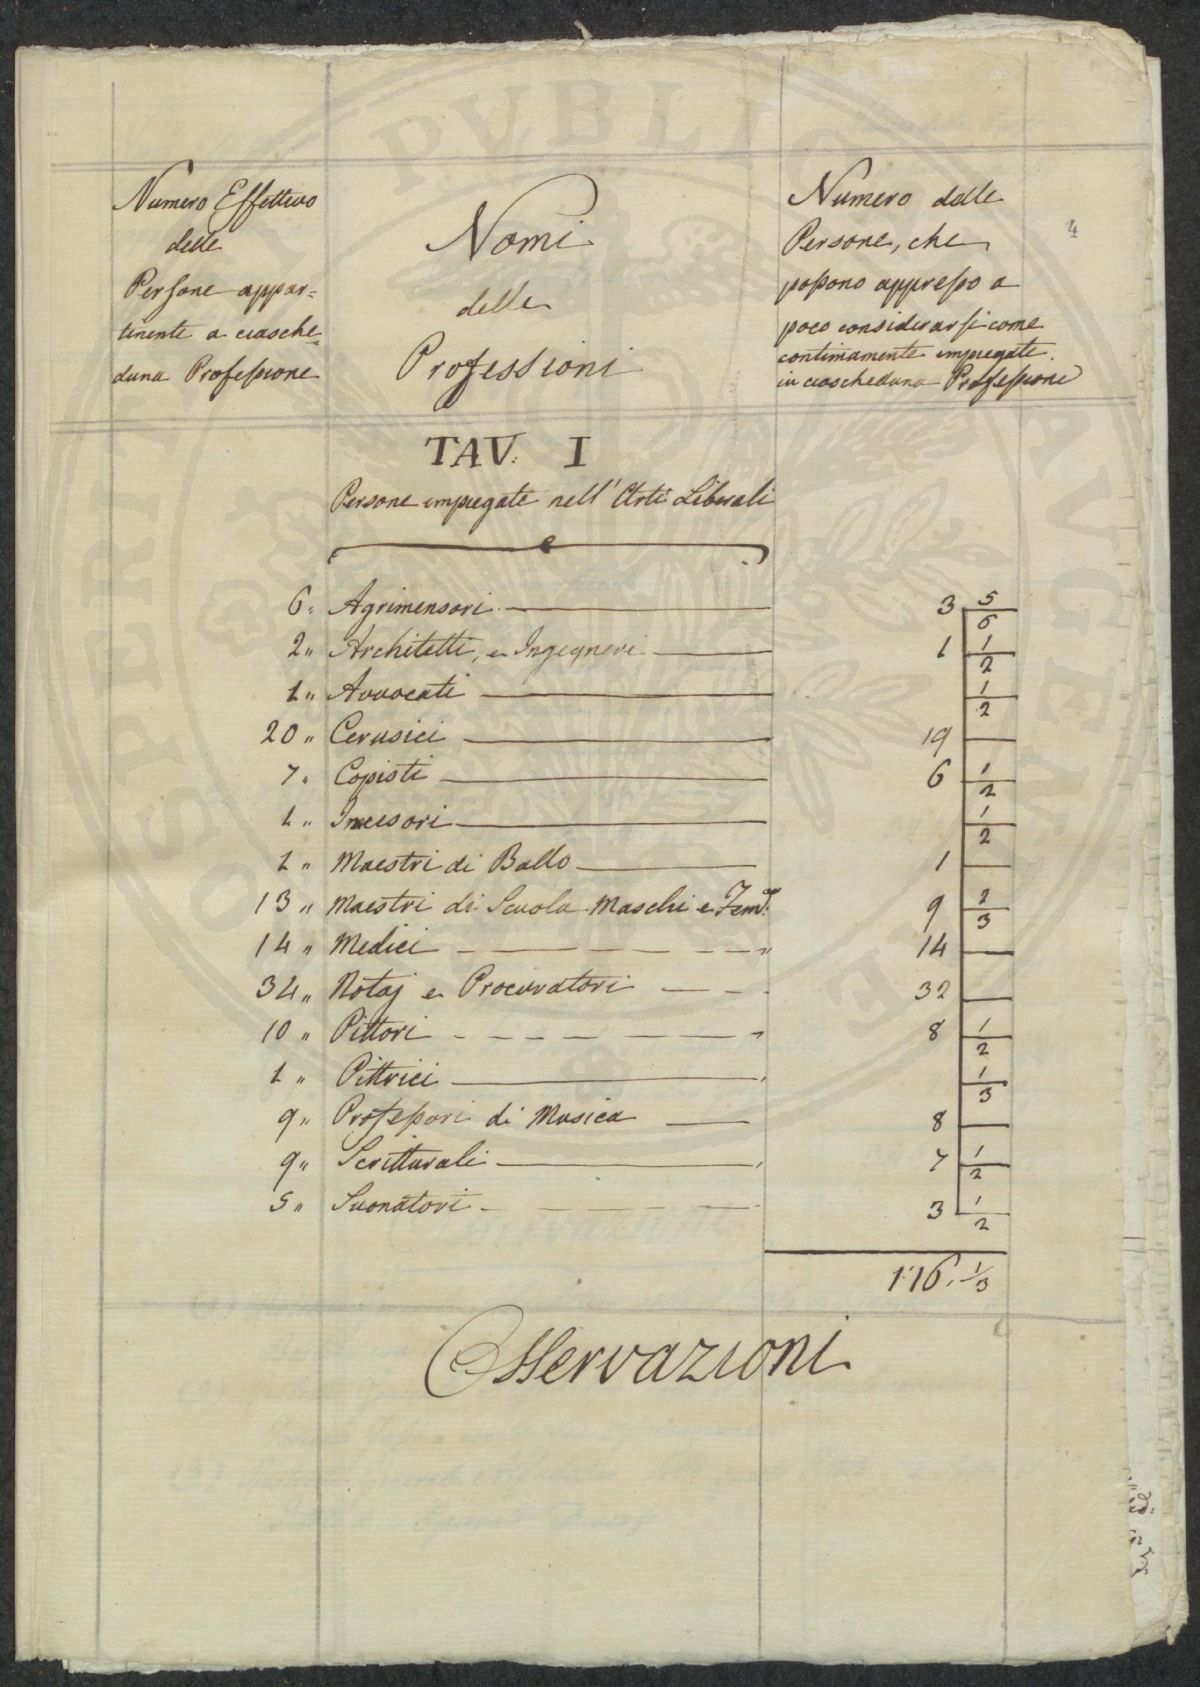 Numero Effettivo
delle
Persone appar=
tenente a ciasche=
duna Professione
Nomi
delle
Professioni
Numero delle
Persone, che
possono appresso a
poco considerarsi come
continuamente impiegate
in ciascheduna Professione
4
TAV: I
Persone impiegate nell' Arti Liberali
6" Agrimensori 3 5/6
2" Architetti, e Ingegneri 1 1/2
1" Avvocati 1/2
20" Cerusici 19
7" Copisti 6 1/2
1" Incisori 1/2
1" Maestri di Ballo 1
13" Maestri di Scuola Maschi e Fem: 9 2/3
14" Medici 14
34" Notaj e Procuratori 32
10" Pittori 8 1/2
1" Pittrici 1/3
9" Professori di Musica 8
9" Scritturali 7 1/2
5" Suonatori 3 1/2
116. 1/3
Osservazioni